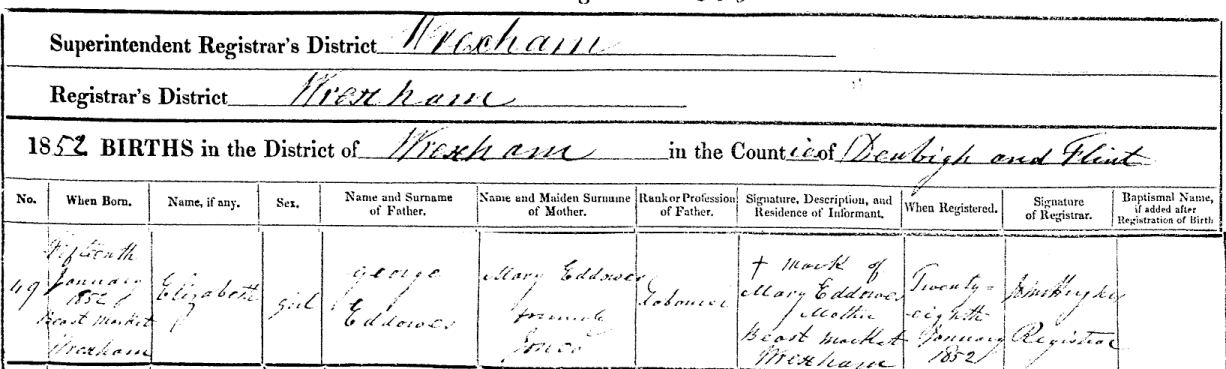 Superintendent Registrar's District Wrexham
Registrar's District Wrexham
1852 BIRTHS in the District of Wrexham in the Counties of Denbigh and Flint
No. When Born. Name, if any. Sex. Name and Surname of Father. Name and Maiden Surname of Mother. Rank or Profession of Father. Signature, Description, and Residence of Informant. When Registered. Signature of Registrar. Baptismal Name, if added after Registration of Birth
49
Fifteenth
January
1852
Beast Market
Wrexham
Elizabeth
girl
George
Eddowes
Mary Eddowes
formerly
Jones
Labourer
+ mark of
Mary Eddowes
Mother
Beast market
Wrexham
Twenty-
eighth
January
1852
John Hughes
Registrar